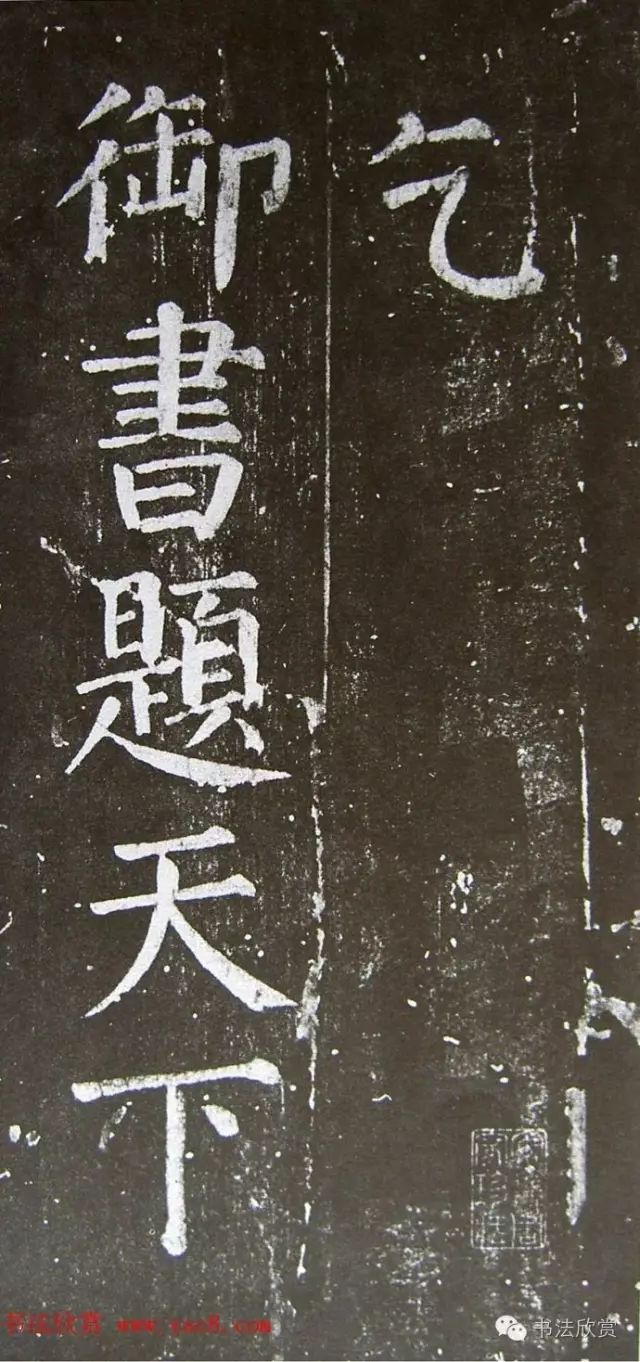 乞
御書題天下
书法欣赏 www.yac8.com
书法欣赏